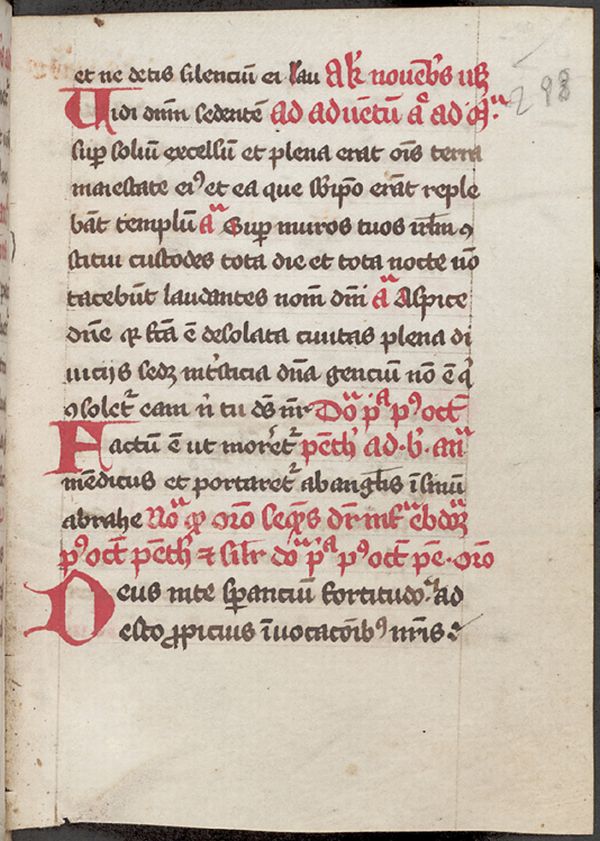 et ne detis silenciū ei lau A kł nouēb's usz
Vidi dnm̄ sedentē ad aduētū aᵒ ad
298
sup soliū excelsū et plena erat oīs terra
maiestate eiꝰ et ea que sb ip̄o erāt reple
bāt templū aᵃ Sup muros tuos irłm ꝯ
stitui custodes tota die et tota nocte nō
tacebūt laudantes nom̄ dn̄i aᵃ Aspice
dn̄e qꝛ fc̄a ē desolata ciuitas plena di
uicijs sedꝫ ī tristicia dn̄a genciū nō ē qͥ
ꝯsoletᷣ eam n̄ tu dȝ nr̄ Doᵃ pᵃ pꝰ oct̄
Factū ē ut moreretᷣ pēth' ad b. anᵃ
mēdicus et portaretᷣ ab angłis ī sinū
abrahe Noᵃ qꝛ oro seq̄ns dr̄ ī t'ᵃ ebdoꝫ
pꝰ oct̄ pēth' ⁊ silr doᵃ pᵃ pꝰ oct̄ pē. oro
Deus in te sꝑanciū fortitudo ad
esto ꝓpicius īuocacōibꝰ nr̄is